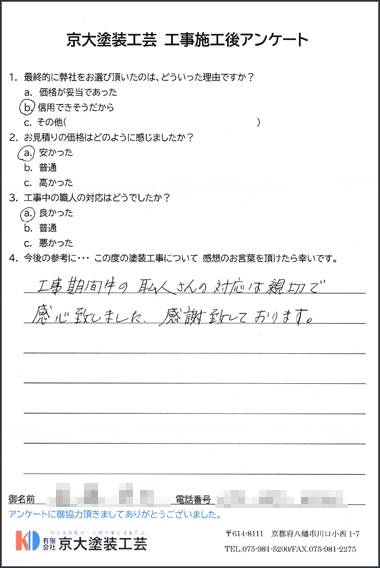 京大塗装工芸 工事施工後アンケート
1. 最終的に弊社をお選び頂いたのは、どういった理由ですか？
a. 価格が妥当であった
b. 信用できそうだから
c. その他( )
2. お見積りの価格はどのように感じましたか？
a. 安かった
b. 普通
c. 高かった
3. 工事中の職人の対応はどうでしたか？
a. 良かった
b. 普通
c. 悪かった
4. 今後の参考に・・・ この度の塗装工事について 感想のお言葉を頂けたら幸いです。
工事期間中の職人さんの対応は親切で
感心致しました. 感謝致しております。
御名前 電話番号
アンケートに御協力頂きましてありがとうございました。
KD 有限会社 京大塗装工芸
〒614-8111 京都府八幡市川口小西1-7
TEL.075-981-5200/FAX.075-981-2275